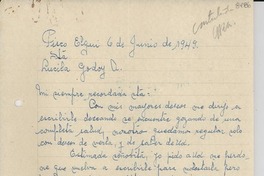 Pisco Elqui 6 de Junio de 1949.
Srta
Lucila Godoy A.
Mi siempre recordada Srta:
Con mis mayores deseos me dirijo a
escribirle deseando se encuentre gozando de una
completa salud, nosotros quedamos regular solo
con deseos de verla, y de saber de Ud.
Estimada señorita, yo pido a Ud me perdo-
ne que vuelva a escribirle para molestarle pero